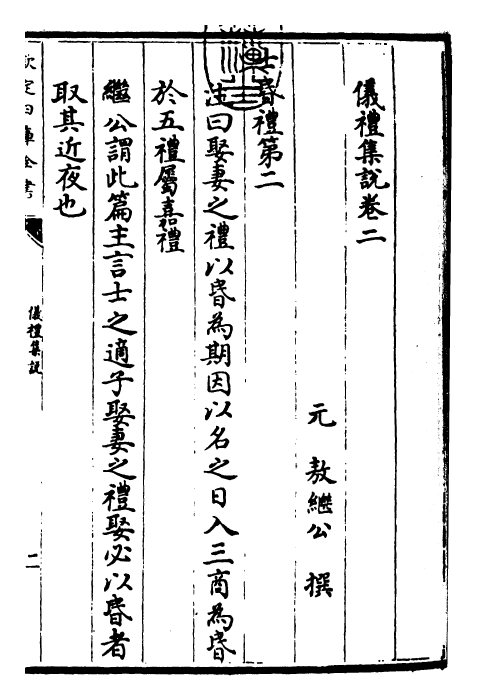 儀禮集説巻二
元 敖繼公 撰
士昏禮第二
注曰娶妻之禮以昏為期因以名之日入三商為昏
於五禮屬嘉禮
繼公謂此篇主言士之適子娶妻之禮娶必以昏者
取其近夜也
欽定四庫全書
儀禮集説
二